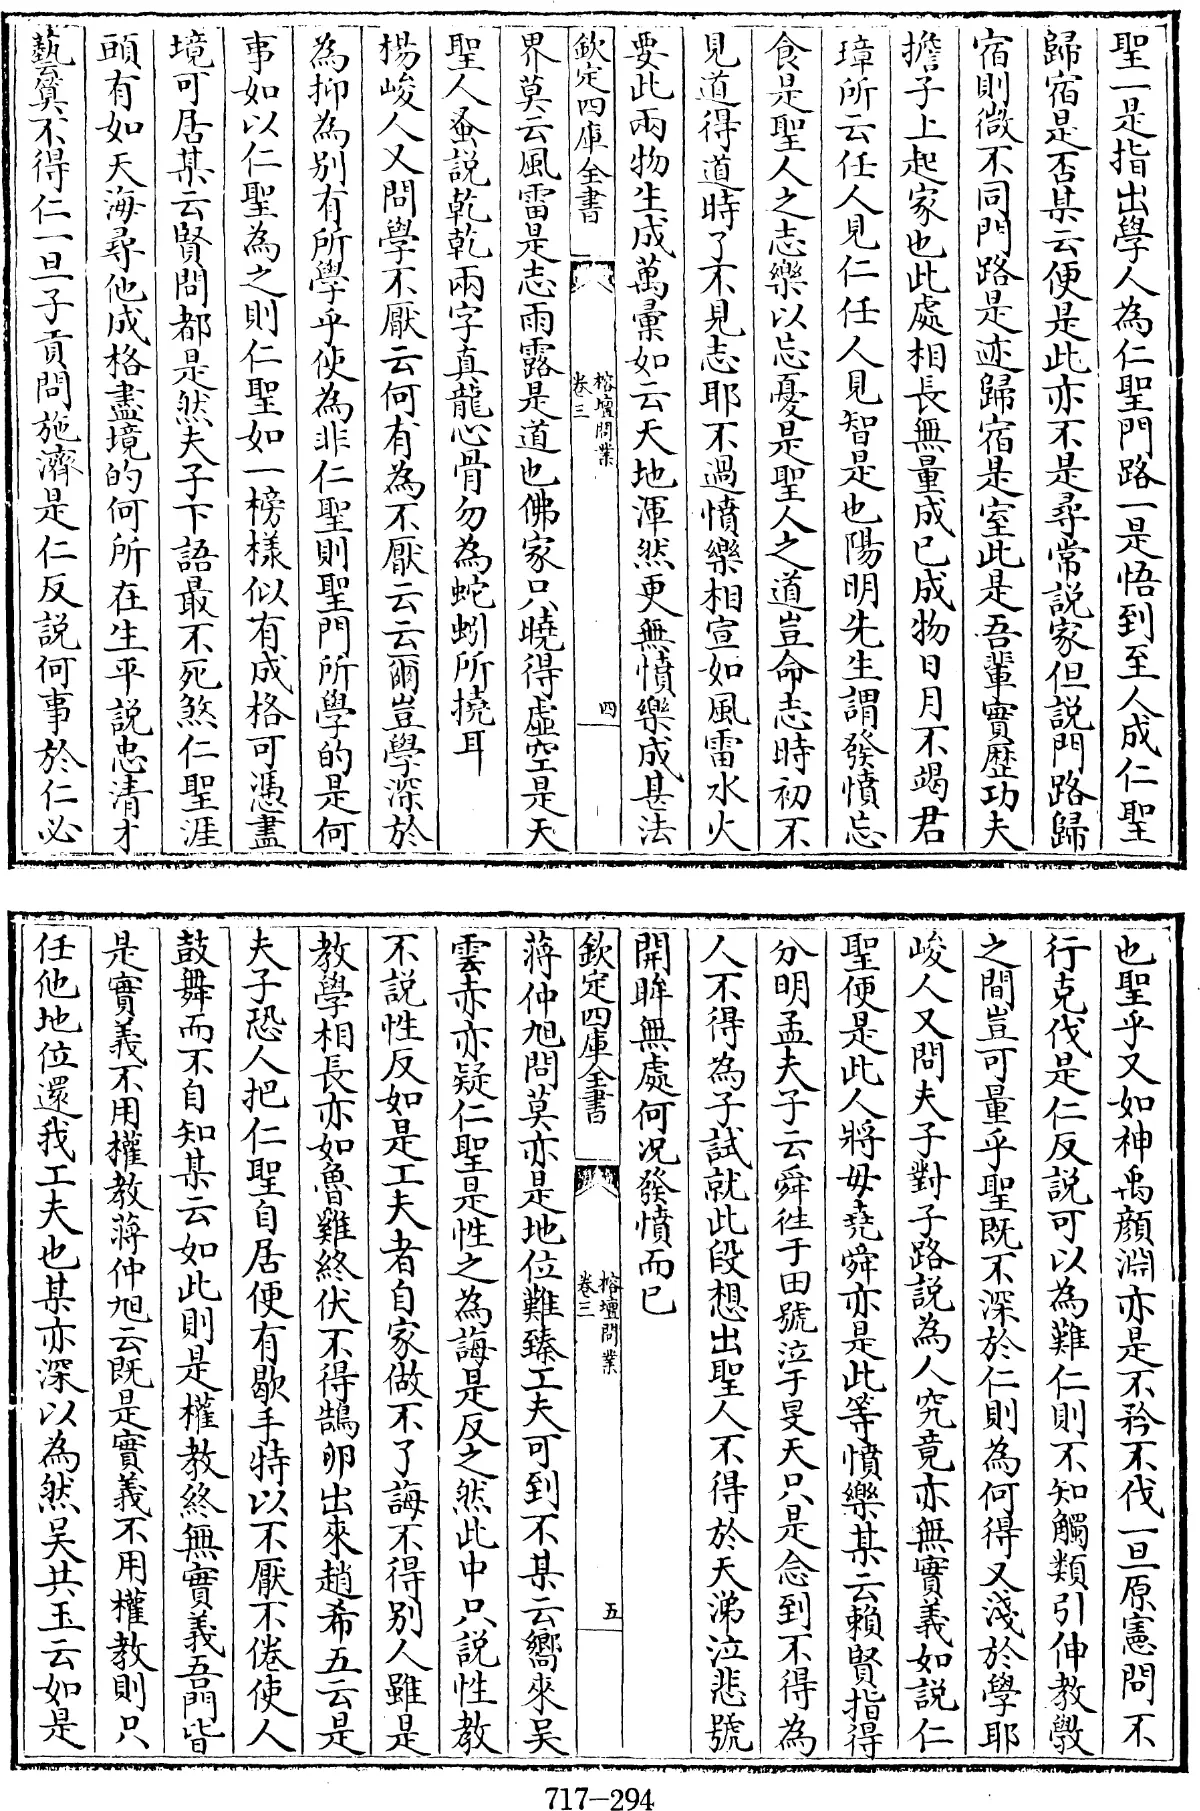 聖一是指出學人為仁聖門路一是悟到至人成仁聖
歸宿是否某云便是此亦不是尋常説家但説門路歸
宿則微不同門路是迹歸宿是室此是吾輩實歴功夫
擔子上起家也此處相長無量成已成物日月不竭君
璋所云任人見仁任人見智是也陽明先生謂發憤忘
食是聖人之志樂以忘憂是聖人之道豈命志時初不
見道得道時了不見志耶不過憤樂相宣如風雷水火
要此兩物生成萬彚如云天地渾然更無憤樂成甚法
欽定四庫全書
榕壇問業
卷三
四
界莫云風雷是志雨露是道也佛家只曉得虚空是天
聖人蚤説乾乾兩字真龍心骨勿為蛇蚓所撓耳
楊峻人又問學不厭云何有為不厭云云爾豈學深於
為抑為别有所學乎使為非仁聖則聖門所學的是何
事如以仁聖為之則仁聖如一榜様似有成格可憑盡
境可居某云賢問都是然夫子下語最不死煞仁聖涯
頭有如天海尋他成格盡境的何所在生平説忠清才
藝算不得仁一旦子貢問施濟是仁反説何事於仁必
也聖乎又如神禹顔淵亦是不矜不伐一旦原憲問不
行克伐是仁反説可以為難仁則不知觸類引伸教斆
之間豈可量乎聖既不深於仁則為何得又淺於學耶
峻人又問夫子對子路説為人究竟亦無實義如説仁
聖便是此人將毋堯舜亦是此等憤樂某云賴賢指得
分明孟夫子云舜徃于田號泣于旻天只是念到不得為
人不得為子試就此段想出聖人不得於天涕泣悲號
開眸無處何况發憤而已
欽定四庫全書
榕壇問業
卷三
五
蔣仲旭問莫亦是地位難臻工夫可到不某云嚮來吳
雲赤亦疑仁聖是性之為誨是反之然此中只説性教
不説性反如是工夫者自家做不了誨不得别人雖是
教學相長亦如魯雞終伏不得鵠卵出來趙希五云是
夫子恐人把仁聖自居便有歇手特以不厭不倦使人
鼓舞而不自知某云如此則是權教終無實義吾門皆
是實義不用權教蔣仲旭云既是實義不用權教則只
任他地位還我工夫也某亦深以為然吳共玉云如是
717-294